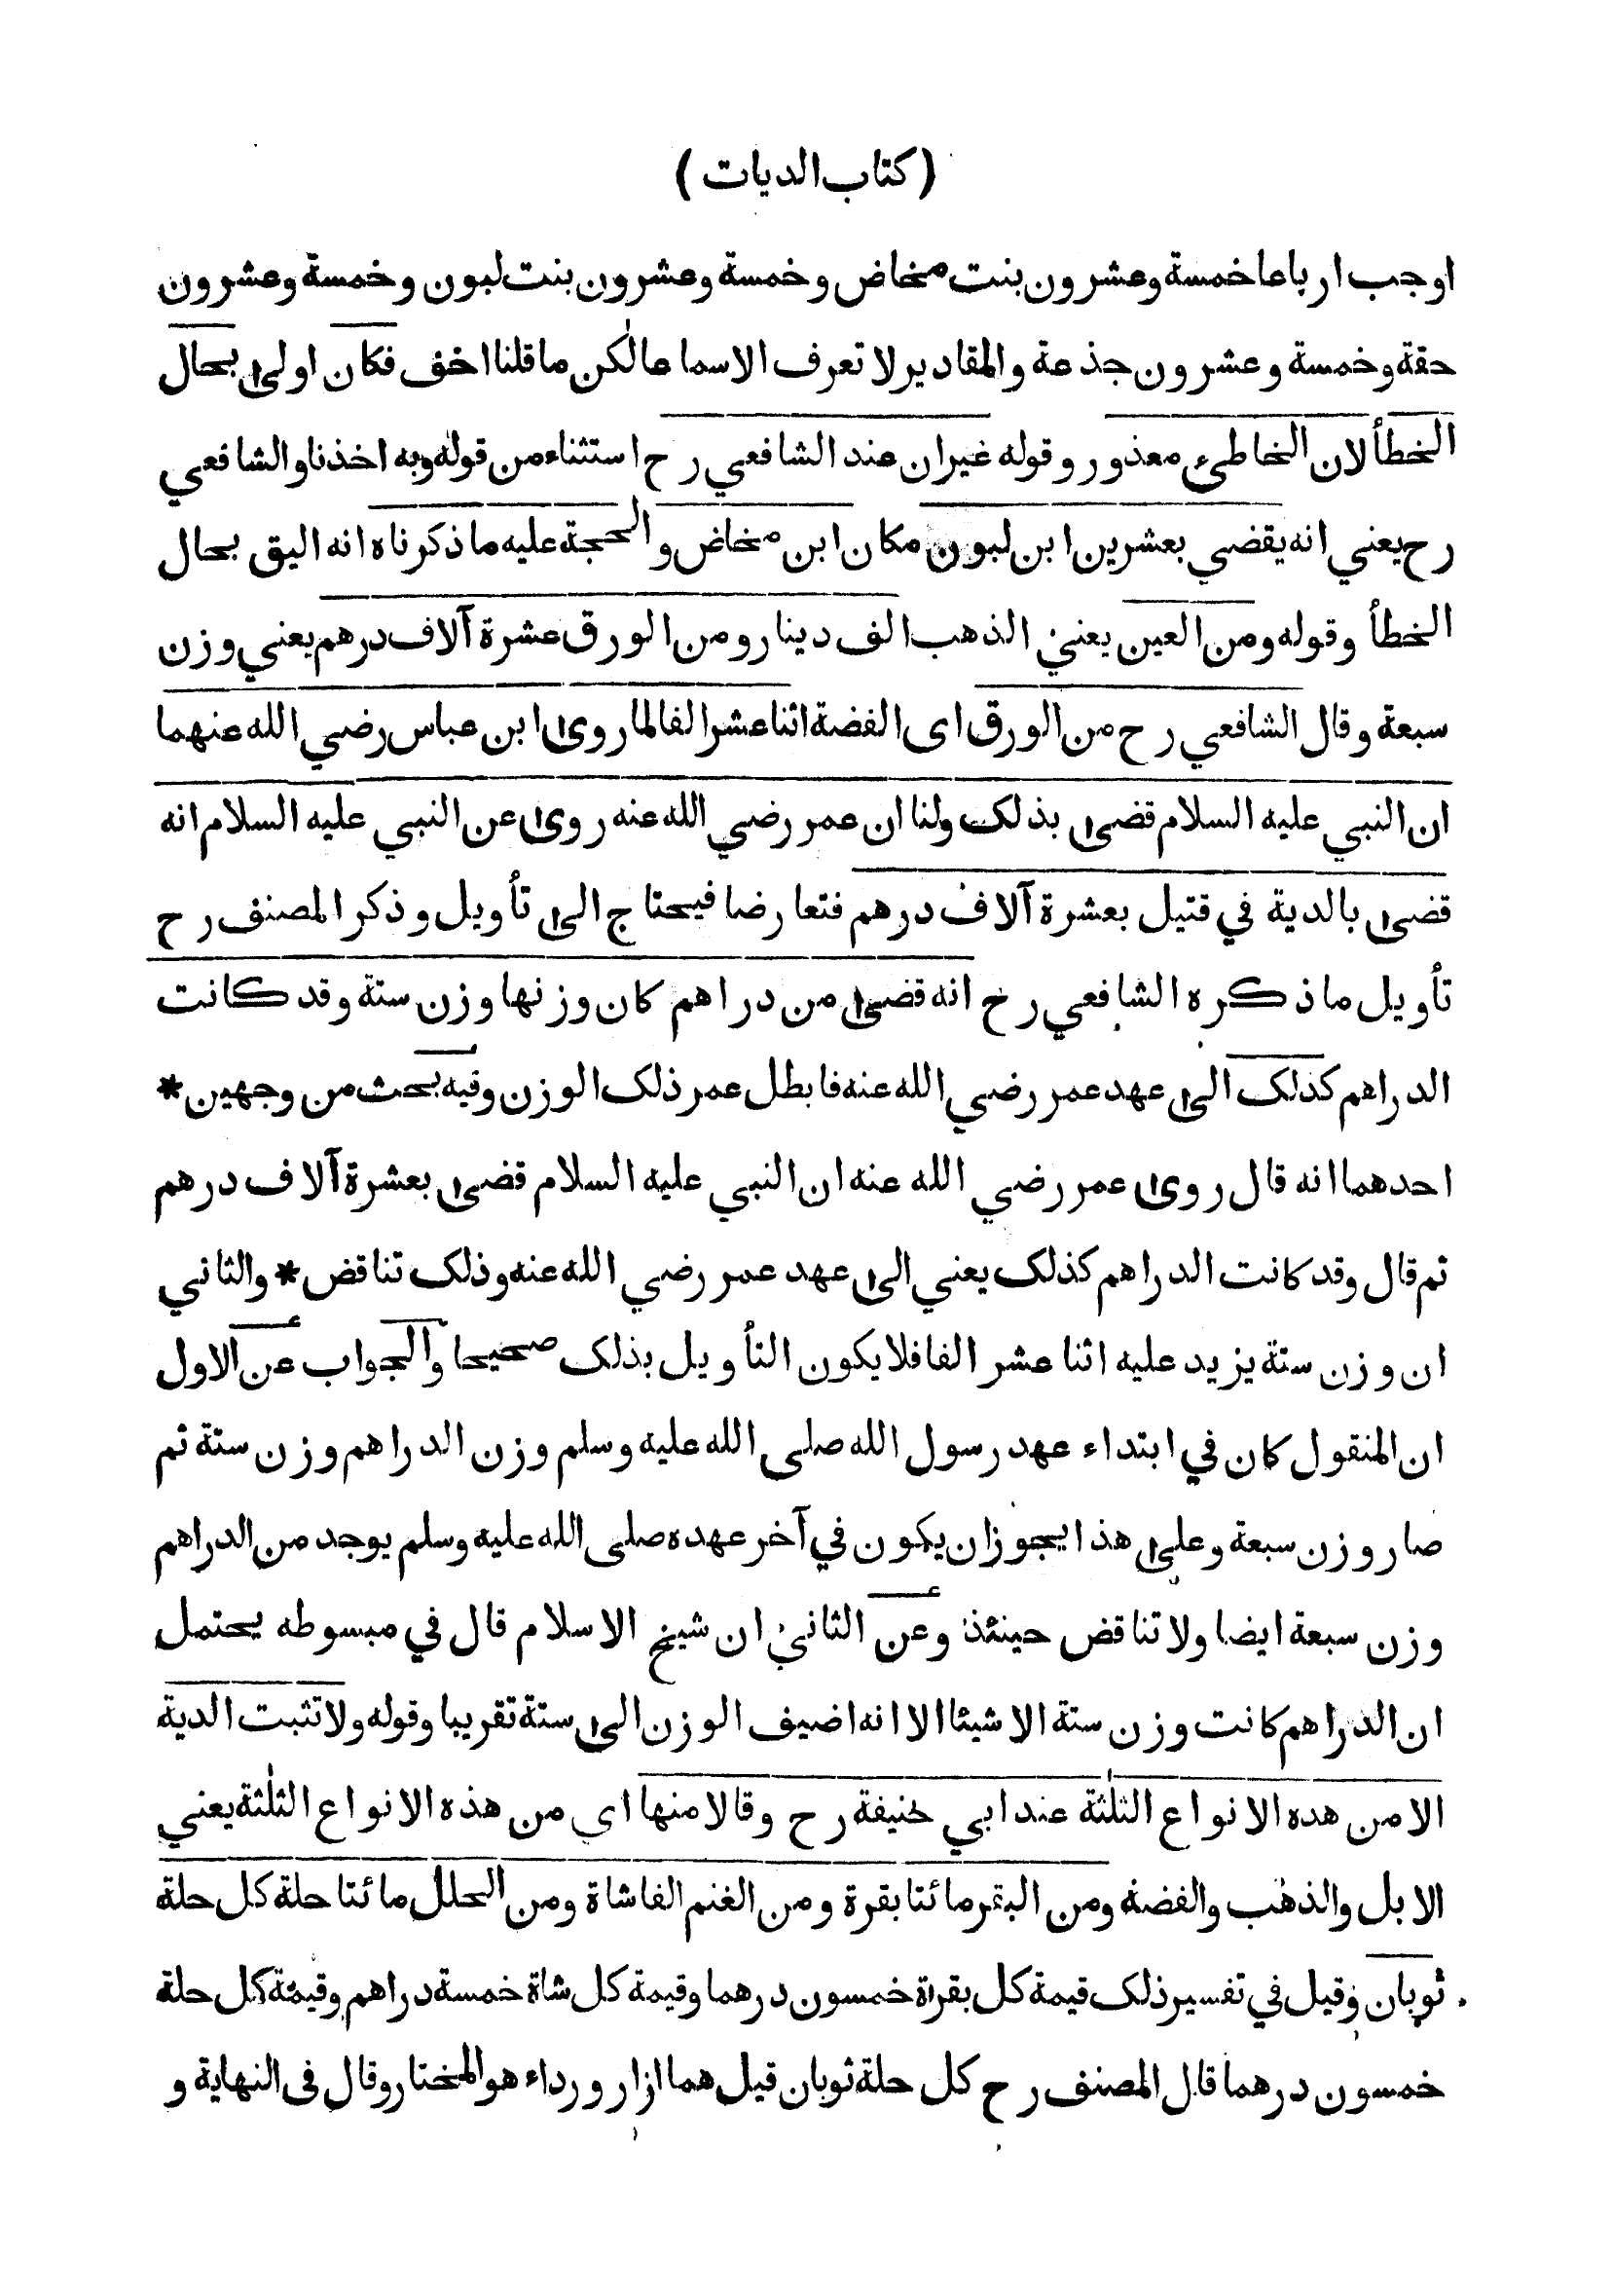 ( كتاب الديات )
اوجب ارباعا خمسة وعشرون بنت مخاض وخمسة وعشرون بنت لبون وخمسة وعشرون
حقة وخمسة وعشرون جذعة والمقادير لا تعرف الا سماعا لكن ما قلنا اخف فكان اولى بحال
الخطأ لان الخاطئ معذور وقوله غير ان عند الشافعي رح استثناء من قوله وبه اخذنا والشافعي
رح يعني انه يقضي بعشرين ابن لبون مكان ابن مخاض والحجة عليه ما ذكرناه انه اليق بحال
الخطأ وقوله ومن العين يعني الذهب الف دينار ومن الورق عشرة آلاف درهم يعني وزن
سبعة وقال الشافعي رح من الورق اى الفضة اثنا عشر الفا لما روى ابن عباس رضي الله عنهما
ان النبي عليه السلام قضى بذلك ولنا ان عمر رضي الله عنه روى عن النبي عليه السلام انه
قضى بالدية في قتيل بعشرة آلاف درهم فتعارضا فيحتاج الى تأويل وذكر المصنف رح
تأويل ما ذكره الشافعي رح انه قضى من دراهم كان وزنها وزن ستة وقد كانت
الدراهم كذلك الى عهد عمر رضي الله عنه فابطل عمر ذلك الوزن وفيه بحث من وجهين *
احدهما انه قال روى عمر رضي الله عنه ان النبي عليه السلام قضى بعشرة آلاف درهم
ثم قال وقد كانت الدراهم كذلك يعني الى عهد عمر رضي الله عنه وذلك تناقض * والثاني
ان وزن ستة يزيد عليه اثنا عشر الفا فلا يكون التأويل بذلك صحيحا والجواب عن الاول
ان المنقول كان في ابتداء عهد رسول الله صلى الله عليه وسلم وزن الدراهم وزن ستة ثم
صار وزن سبعة وعلى هذا يجوز ان يكون في آخر عهده صلى الله عليه وسلم يوجد من الدراهم
وزن سبعة ايضا ولا تناقض حينئذ وعن الثاني ان شيخ الاسلام قال في مبسوطه يحتمل
ان الدراهم كانت وزن ستة الا شيئا الا انه اضيف الوزن الى ستة تقريبا وقوله ولا تثبت الدية
الا من هده الانواع الثلثة عند ابي حنيفة رح وقالا منها اى من هذه الانواع الثلثة يعني
الابل والذهب والفضة ومن البقر مائتا بقرة ومن الغنم الفا شاة ومن الحلل مائتا حلة كل حلة
ثوبان وقيل في تفسير ذلك قيمة كل بقرة خمسون درهما وقيمة كل شاة خمسة دراهم وقيمة كل حلة
خمسون درهما قال المصنف رح كل حلة ثوبان قيل هما ازار ورداء هو المختار وقال فى النهاية و